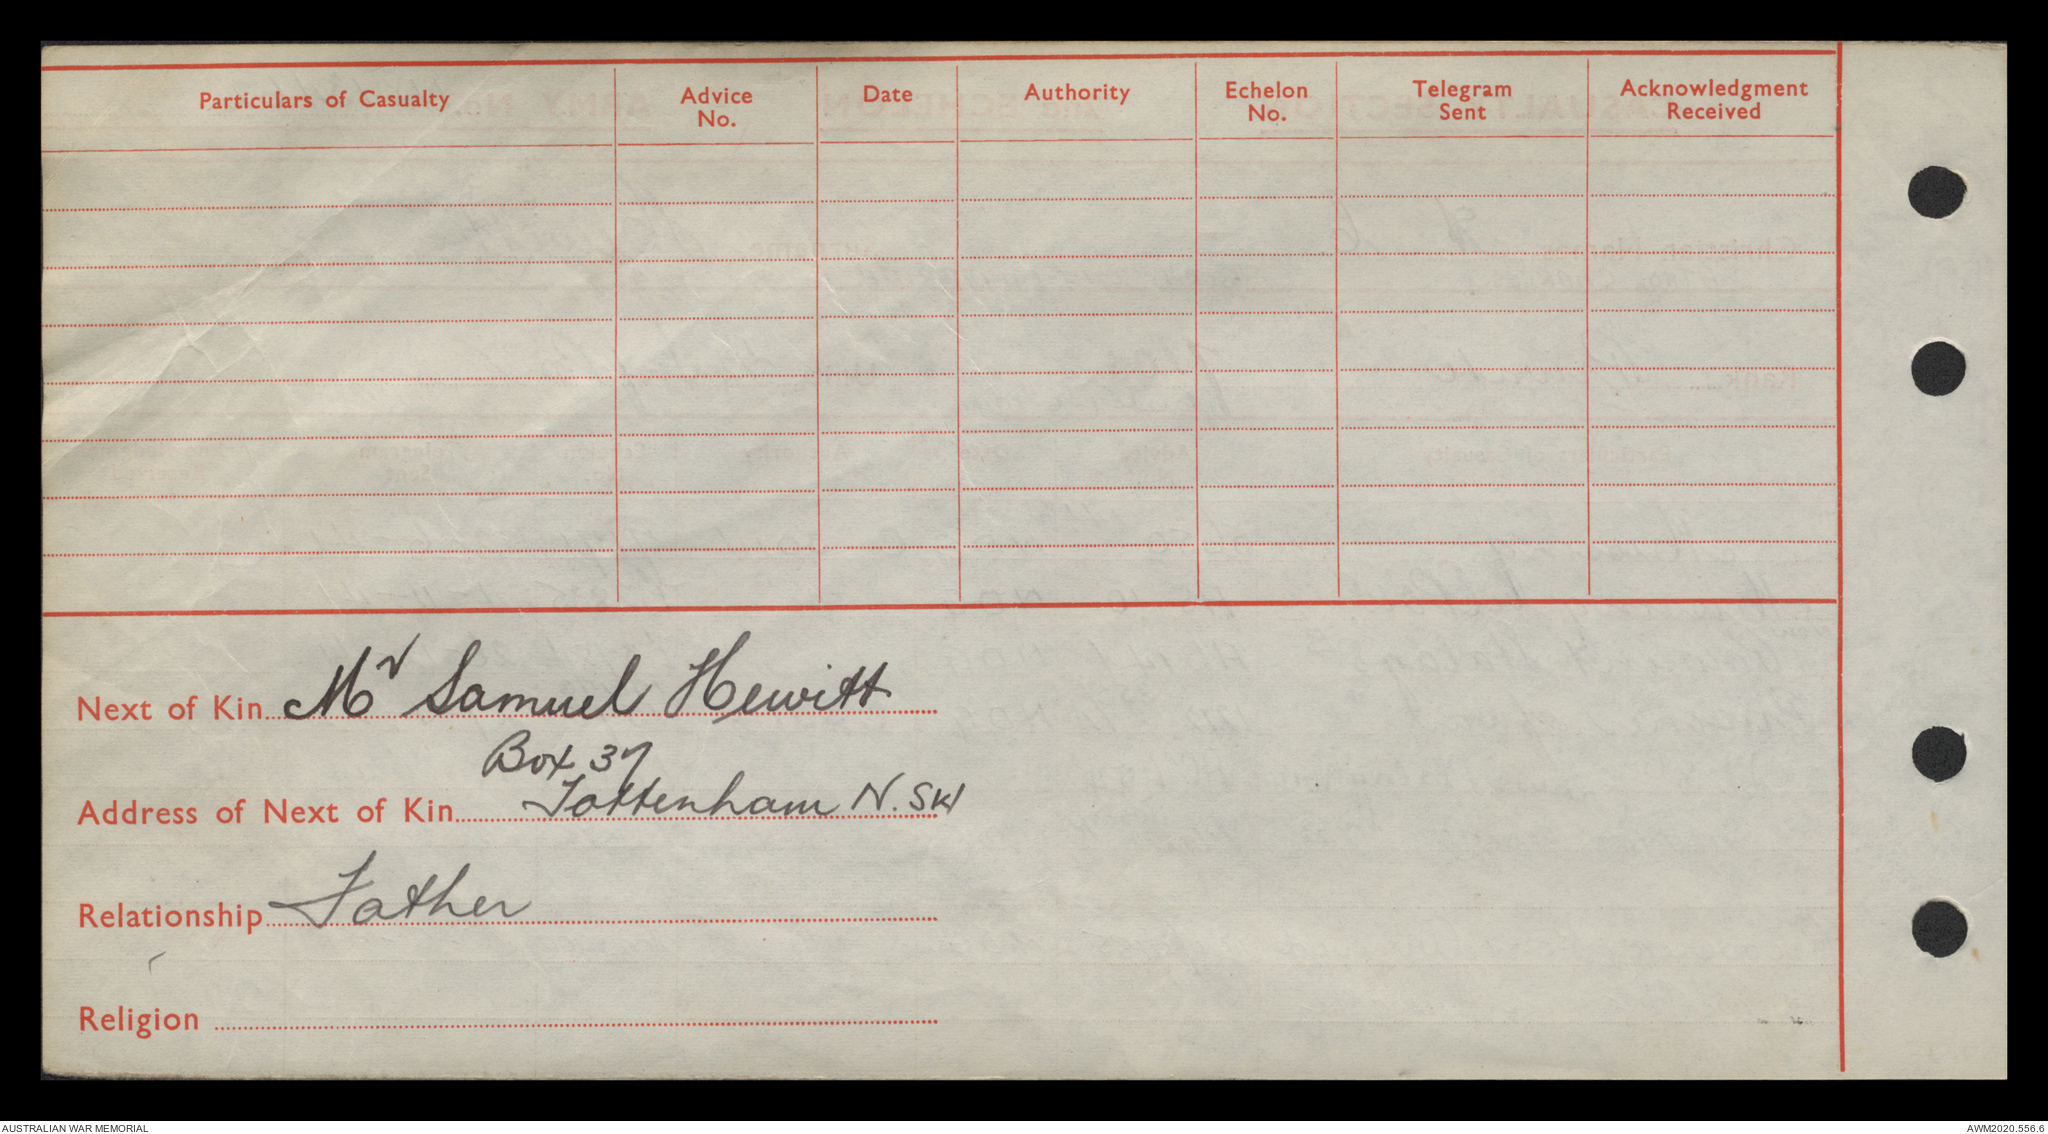 Particulars of Casualty Advice No. Date Authority Echelon No. Telegram Sent Acknowledgment Received
Next of Kin Mr Samuel Hewitt
Box 37
Address of Next of Kin Tottenham N.SW
Relationship Father
Religion
AUSTRALIAN WAR MEMORIAL AWM2020.556.6